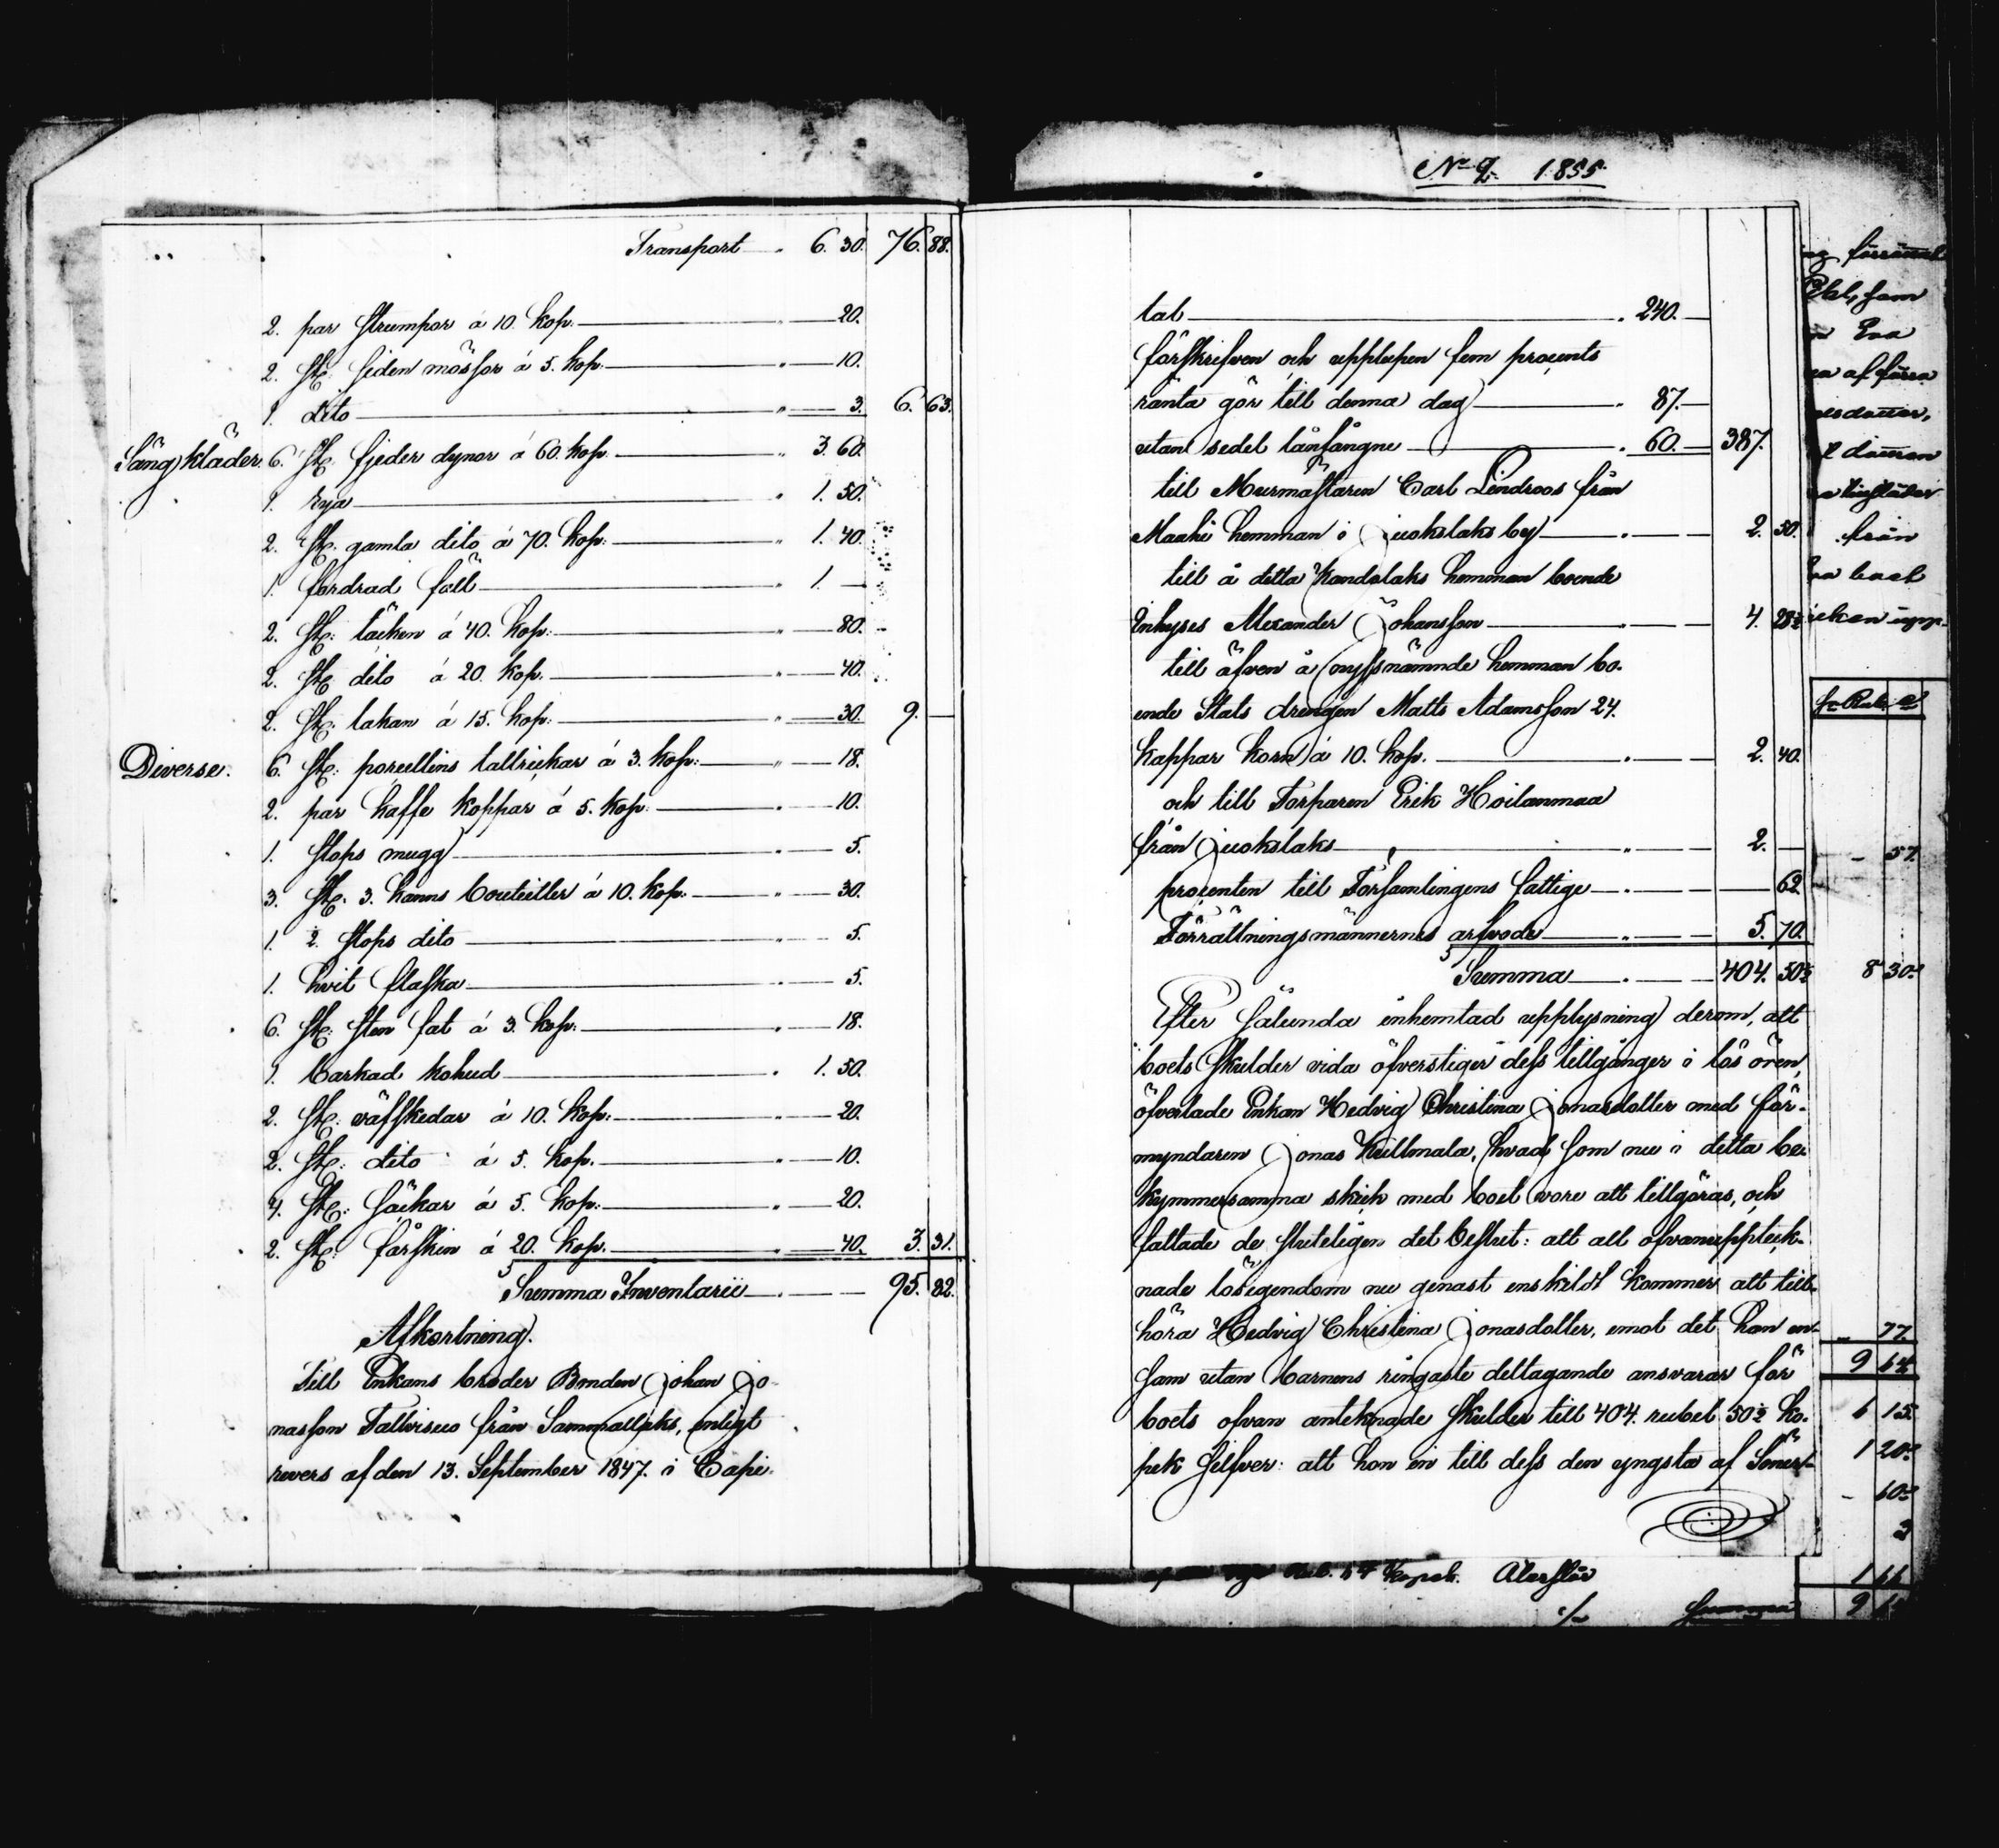 Transport " 6. 30. 76. 88.
2. par strumpor á 10. kop: " 20.
2. St: siden mössor á 5. kop: " 10.
1. dito " 3. 6. 63.
Sängkläder. 6. St: fjeder dynor á 60. kop. " 3. 60.
1. rya " 1. 50.
2. St. gamla dito á 70. kop: " 1. 40.
1. fordrad fäll " 1. —
2. St: täcken á 40. kop: " 80.
2. St: dito á 20. kop. " 40.
2. St: lakan á 15. kop: " 30. 9. —
Diverse. 6. St: porcellins tallrickar á 3. kop: " 18.
2. par kaffe koppar á 5. kop: " 10.
1. stops mugg " 5.
3. St. 3. kanns bouteiller á 10. kop. " 30.
1. 2. stops dito " 5.
1. hvit flaska " 5.
6. St: sten fat á 3. kop: " 18.
1. barkad kohud " 1. 50.
2. St: väfskedar á 10. kop: " 20.
2. St: dito á 5. kop. " 10.
4. St: säckar á 5. kop: " 20.
2. St: fårskin á 20. kop. " 40. 3. 31.
Summa Inventarii 95. 82.
Afkortning.
Till Enkans broder Bonden Johan Jo-
nasson Tallvisuo från Sammallaks, enligt
revers af den 13. September 1847. i Capi-
No 2. 1855.
tal " 240. —
förskrifven och upplupen fem procents
ränta gör till denna dag " 87. —
utan sedel lånfångne " 60. — 387.
till Murmästaren Carl Lindroos från
Maahi hemman i Juokslaks by " 2. 50.
till å detta Kandolaks hemman boende
Inhyses Alexander Johansson " 4. 28½
till äfven å nyssnämnde hemman bo-
ende Stats drengen Matts Adamsson 24.
kappar korn á 10. kop. " 2. 40.
och till Torparen Erik Hoilanmaa
från Juokslaks " 2. —
procenten till Församlingens fattige " 62
Förrättningsmännernes arfvode " 5. 70.
Summa " 404. 50½
Efter sålunda inhemtad upplysning derom, att
boets skulder vida öfverstiger dess tillgånger i lös ören,
öfverlade Enkan Hedvig Christina Jonasdotter med för-
myndaren Jonas Kullmala, hvad som nu i detta be-
kymmersamma skick med boet vore att tillgöras, och
fattade de sluteligen det beslut: att all ofvanuppteck-
nade lösegendom nu genast enskildt kommer att till-
höra Hedvig Christina Jonasdotter, emot det hon en-
sam utan barnens ringaste deltagande ansvarar för
boets ofvan antecknade skulder till 404. rubel 50½ ko-
pek Silfver: att hon in till dess den yngsta af Söner-
som
Eva
af förra
från
boet
57.
8 30½
77.
9 64
6 15
1 20½
60½
3
1 66
9
Rub. 57 Kopek. Återstår
Summa